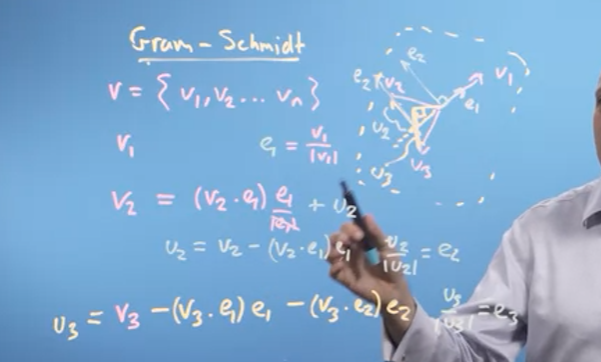 Gram-Schmidt
V = { v₁, v₂ ... vₙ }
v₁ e₁ = v₁/|v₁|
v₂ = (v₂·e₁) e₁/|e₁| + u₂
u₂ = v₂ - (v₂·e₁)e₁ u₂/|u₂| = e₂
u₃ = v₃ - (v₃·e₁)e₁ - (v₃·e₂)e₂ u₃/|u₃| = e₃
e₂
e₂ v₂
v₁
e₁
u₂
u₃
v₃